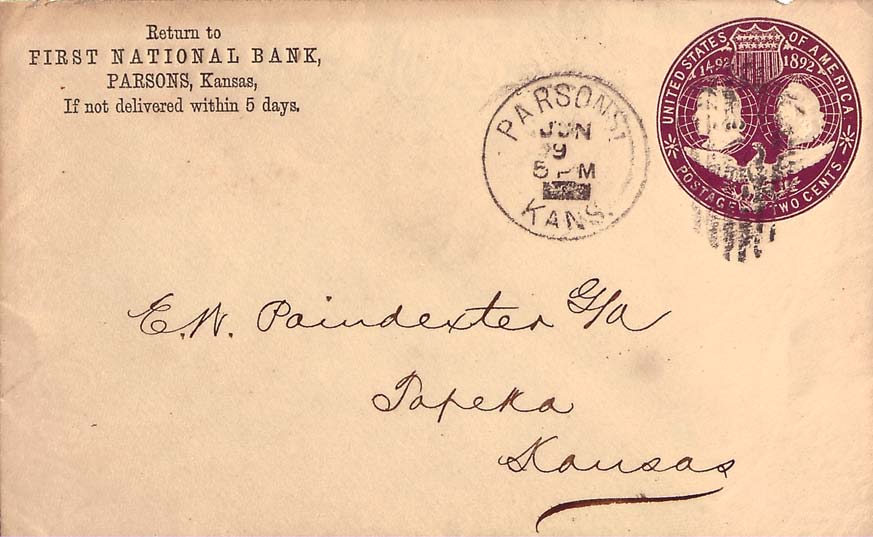 Return to
FIRST NATIONAL BANK,
PARSONS, Kansas,
If not delivered within 5 days.
PARSONS
JUN
9
5 PM
KANS.
UNITED STATES OF AMERICA
1492 1892
POSTAGE TWO CENTS
E. W. Poindexter G/a
Topeka
Kansas